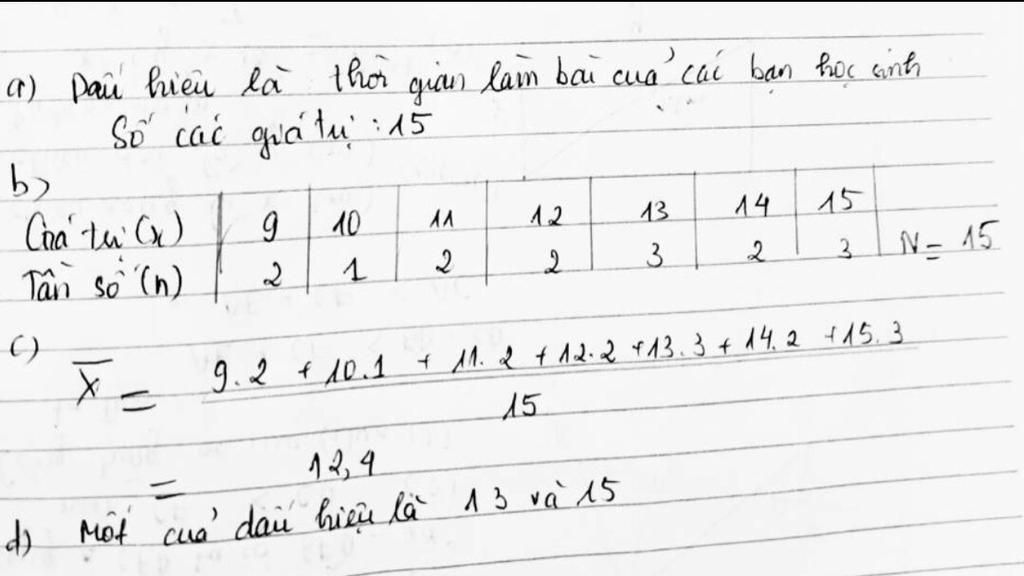 a) Dấu hiệu là thời gian làm bài của các bạn học sinh
Số các giá trị : 15
b)
Giá trị (x) 9 10 11 12 13 14 15
Tần số (n) 2 1 2 2 3 2 3 N = 15
c)
X̅ = 9.2 + 10.1 + 11.2 + 12.2 + 13.3 + 14.2 + 15.3
15
= 12,4
d) Mốt của dấu hiệu là 13 và 15